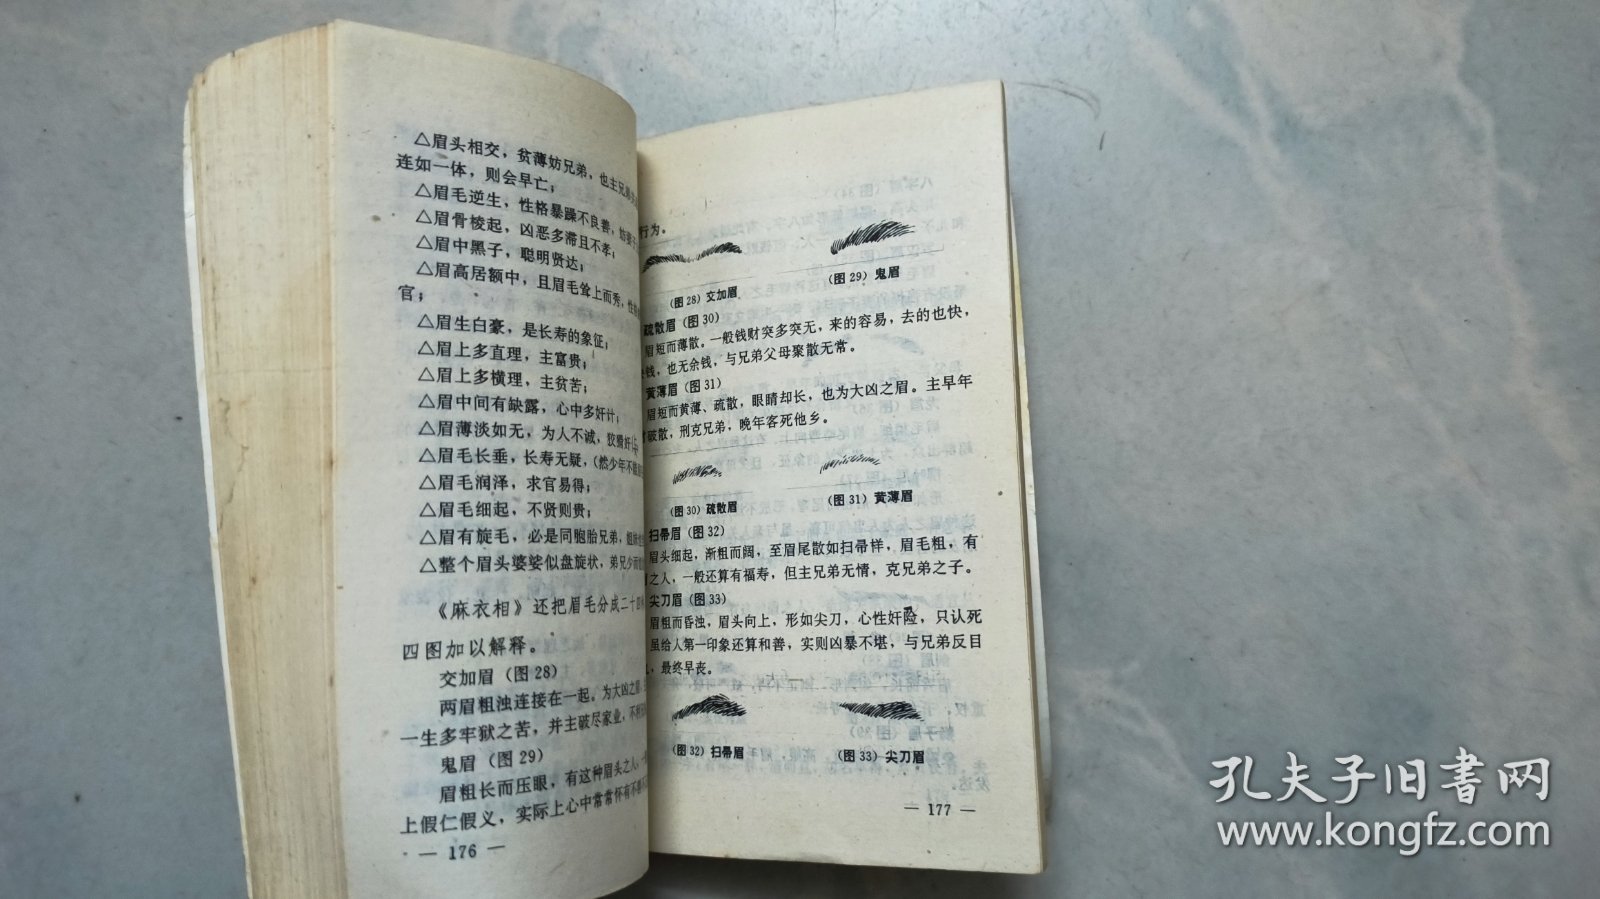 △眉头相交，贫薄妨兄弟，也主兄弟
连如一体，则会早亡；
△眉毛逆生，性格暴躁不良善，妨妻子
△眉骨棱起，凶恶多滞且不孝；
△眉中黑子，聪明贤达；
△眉高居额中，且眉毛耸上而秀，性
官；
△眉生白豪，是长寿的象征；
△眉上多直理，主富贵；
△眉上多横理，主贫苦；
△眉中间有缺露，心中多奸计；
△眉薄淡如无，为人不诚，狡猾奸
△眉毛长垂，长寿无疑，（然少年不
△眉毛润泽，求官易得；
△眉毛细起，不贤则贵；
△眉有旋毛，必是同胞胎兄弟，姐妹
△整个眉头婆娑似盘旋状，弟兄少而
《麻衣相》还把眉毛分成二十四
四图加以解释。
交加眉（图28）
两眉粗浊连接在一起。为大凶之眉，
一生多牢狱之苦，并主破尽家业，不
鬼眉（图29）
眉粗长而压眼，有这种眉头之人，一
上假仁假义，实际上心中常常怀有不
— 176 —
行为。
（图28）交加眉
（图29）鬼眉
疏散眉（图30）
眉短而薄散。一般钱财突多突无，来的容易，去的也快，
钱，也无余钱，与兄弟父母聚散无常。
黄薄眉（图31）
眉短而黄薄、疏散，眼睛却长，也为大凶之眉。主早年
破散，刑克兄弟，晚年客死他乡。
（图30）疏散眉
（图31）黄薄眉
扫帚眉（图32）
眉头细起，渐粗而阔，至眉尾散如扫帚样，眉毛粗，有
之人，一般还算有福寿，但主兄弟无情，克兄弟之子。
尖刀眉（图33）
眉粗而昏浊，眉头向上，形如尖刀，心性奸险，只认死
虽给人第一印象还算和善，实则凶暴不堪，与兄弟反目
，最终早丧。
（图32）扫帚眉
（图33）尖刀眉
— 177 —
孔夫子旧书网
www.kongfz.com